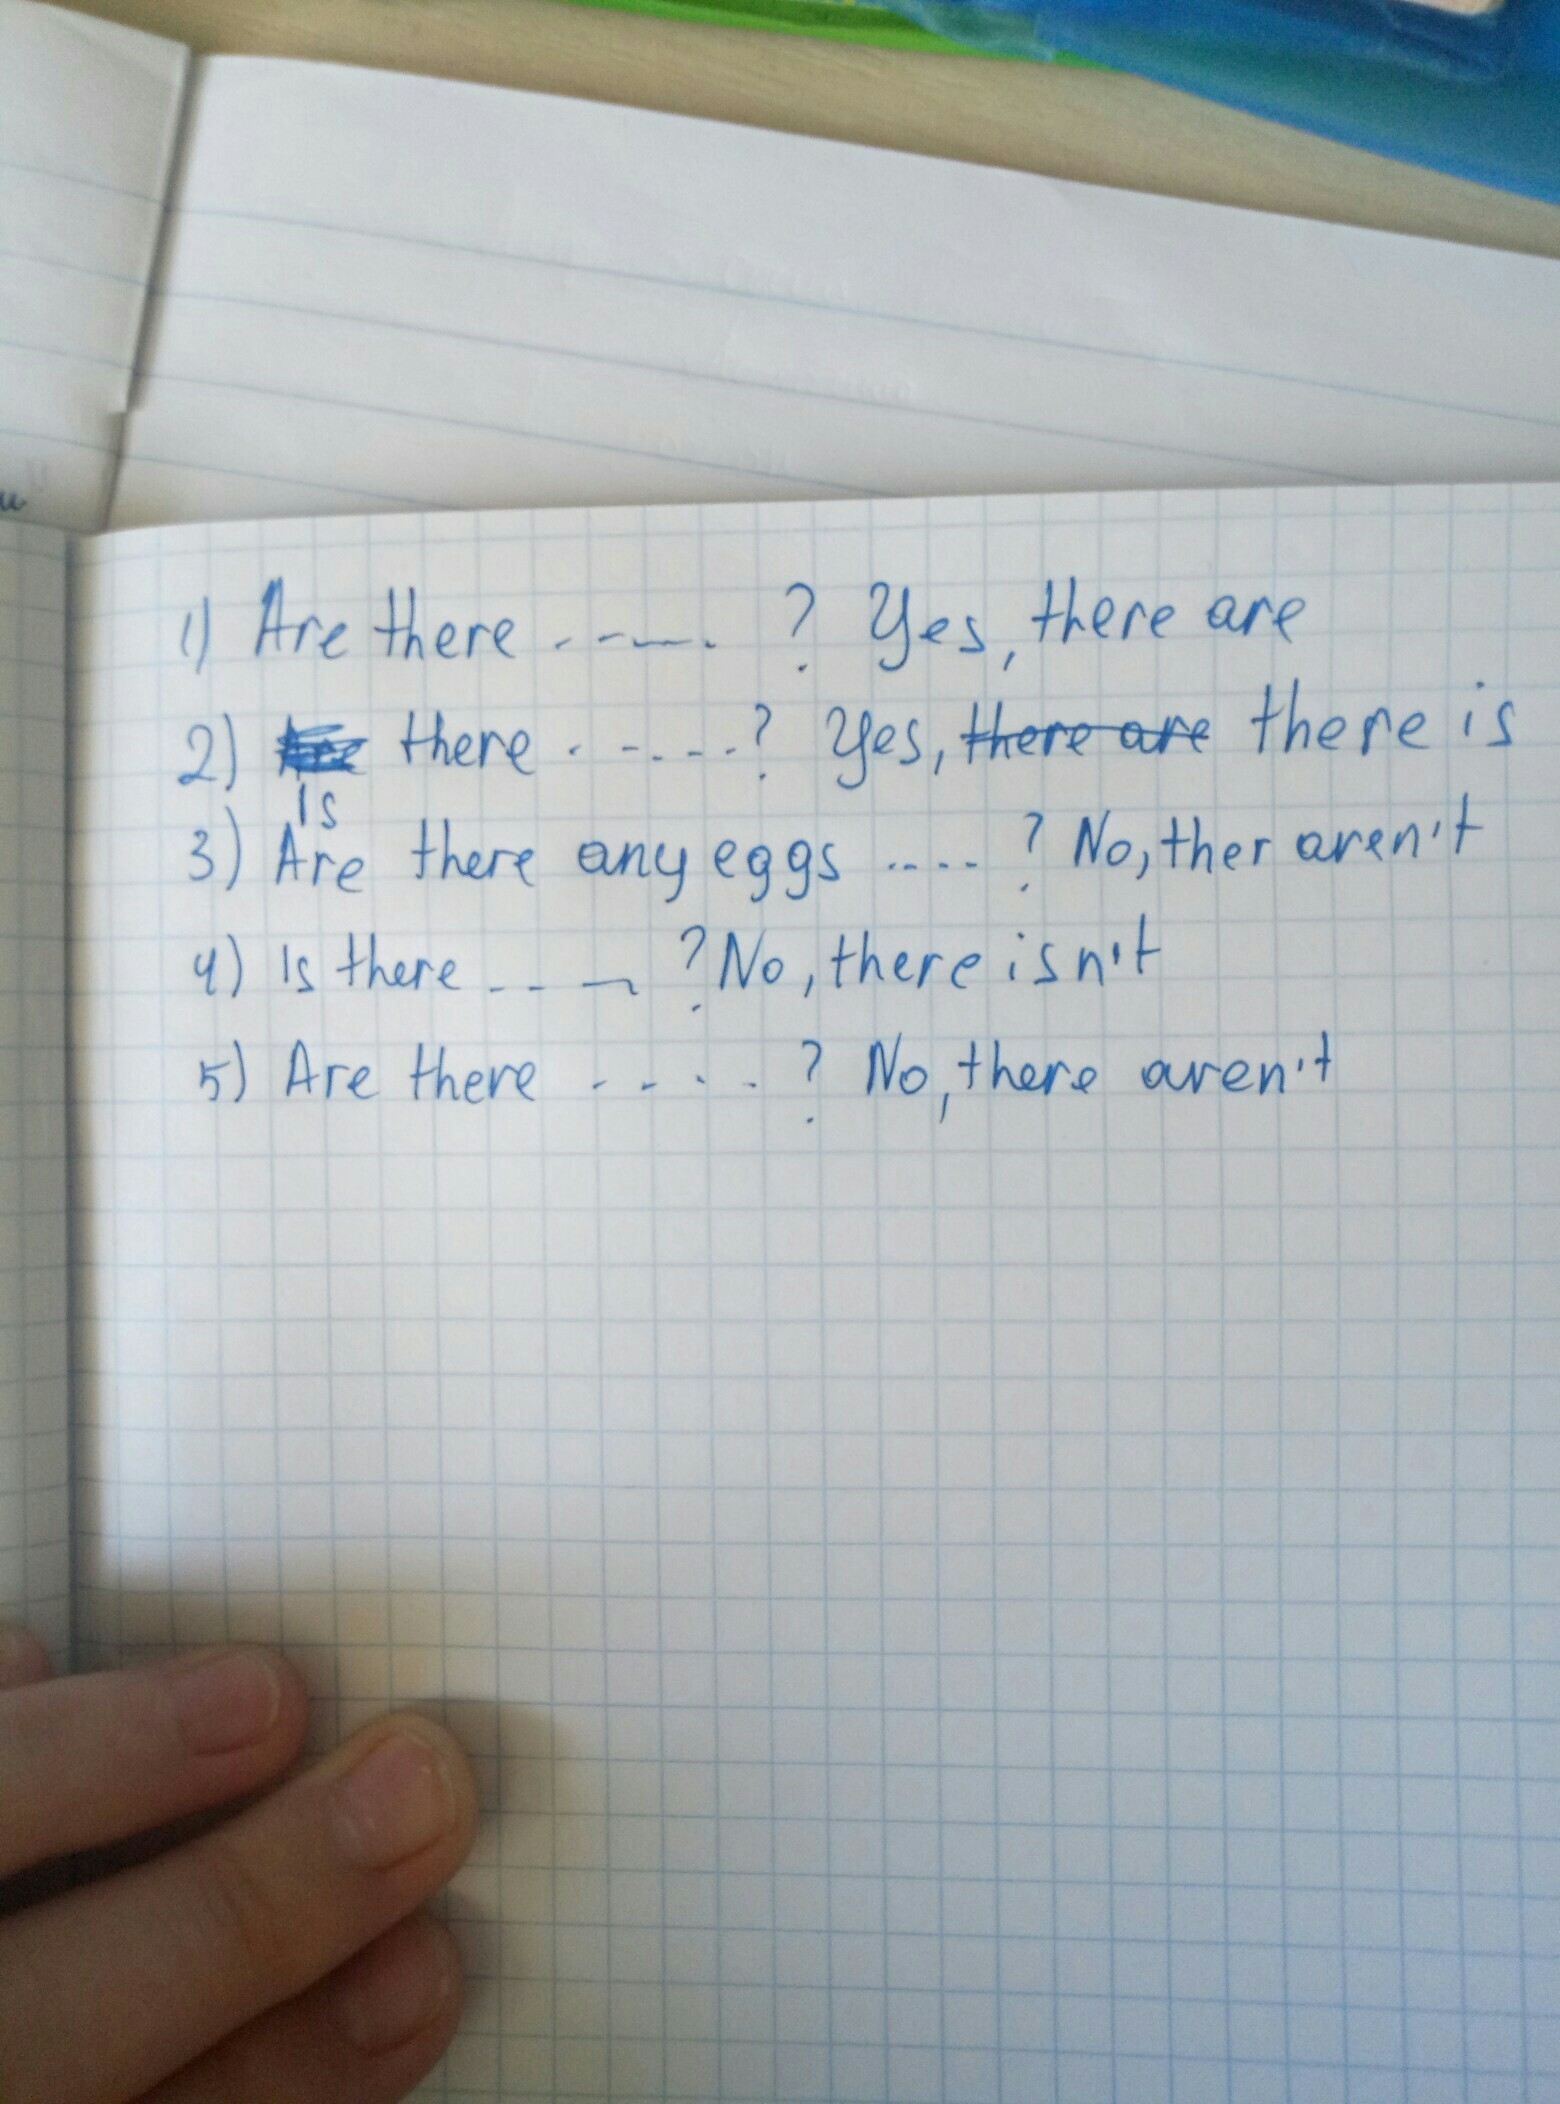 1) Are there ----. ? Yes, there are
2) Is there . ----.? Yes, there are there is
3) Are there any eggs ....? No, ther aren't
4) Is there --- ? No, there isn't
5) Are there ....? No, there aren't